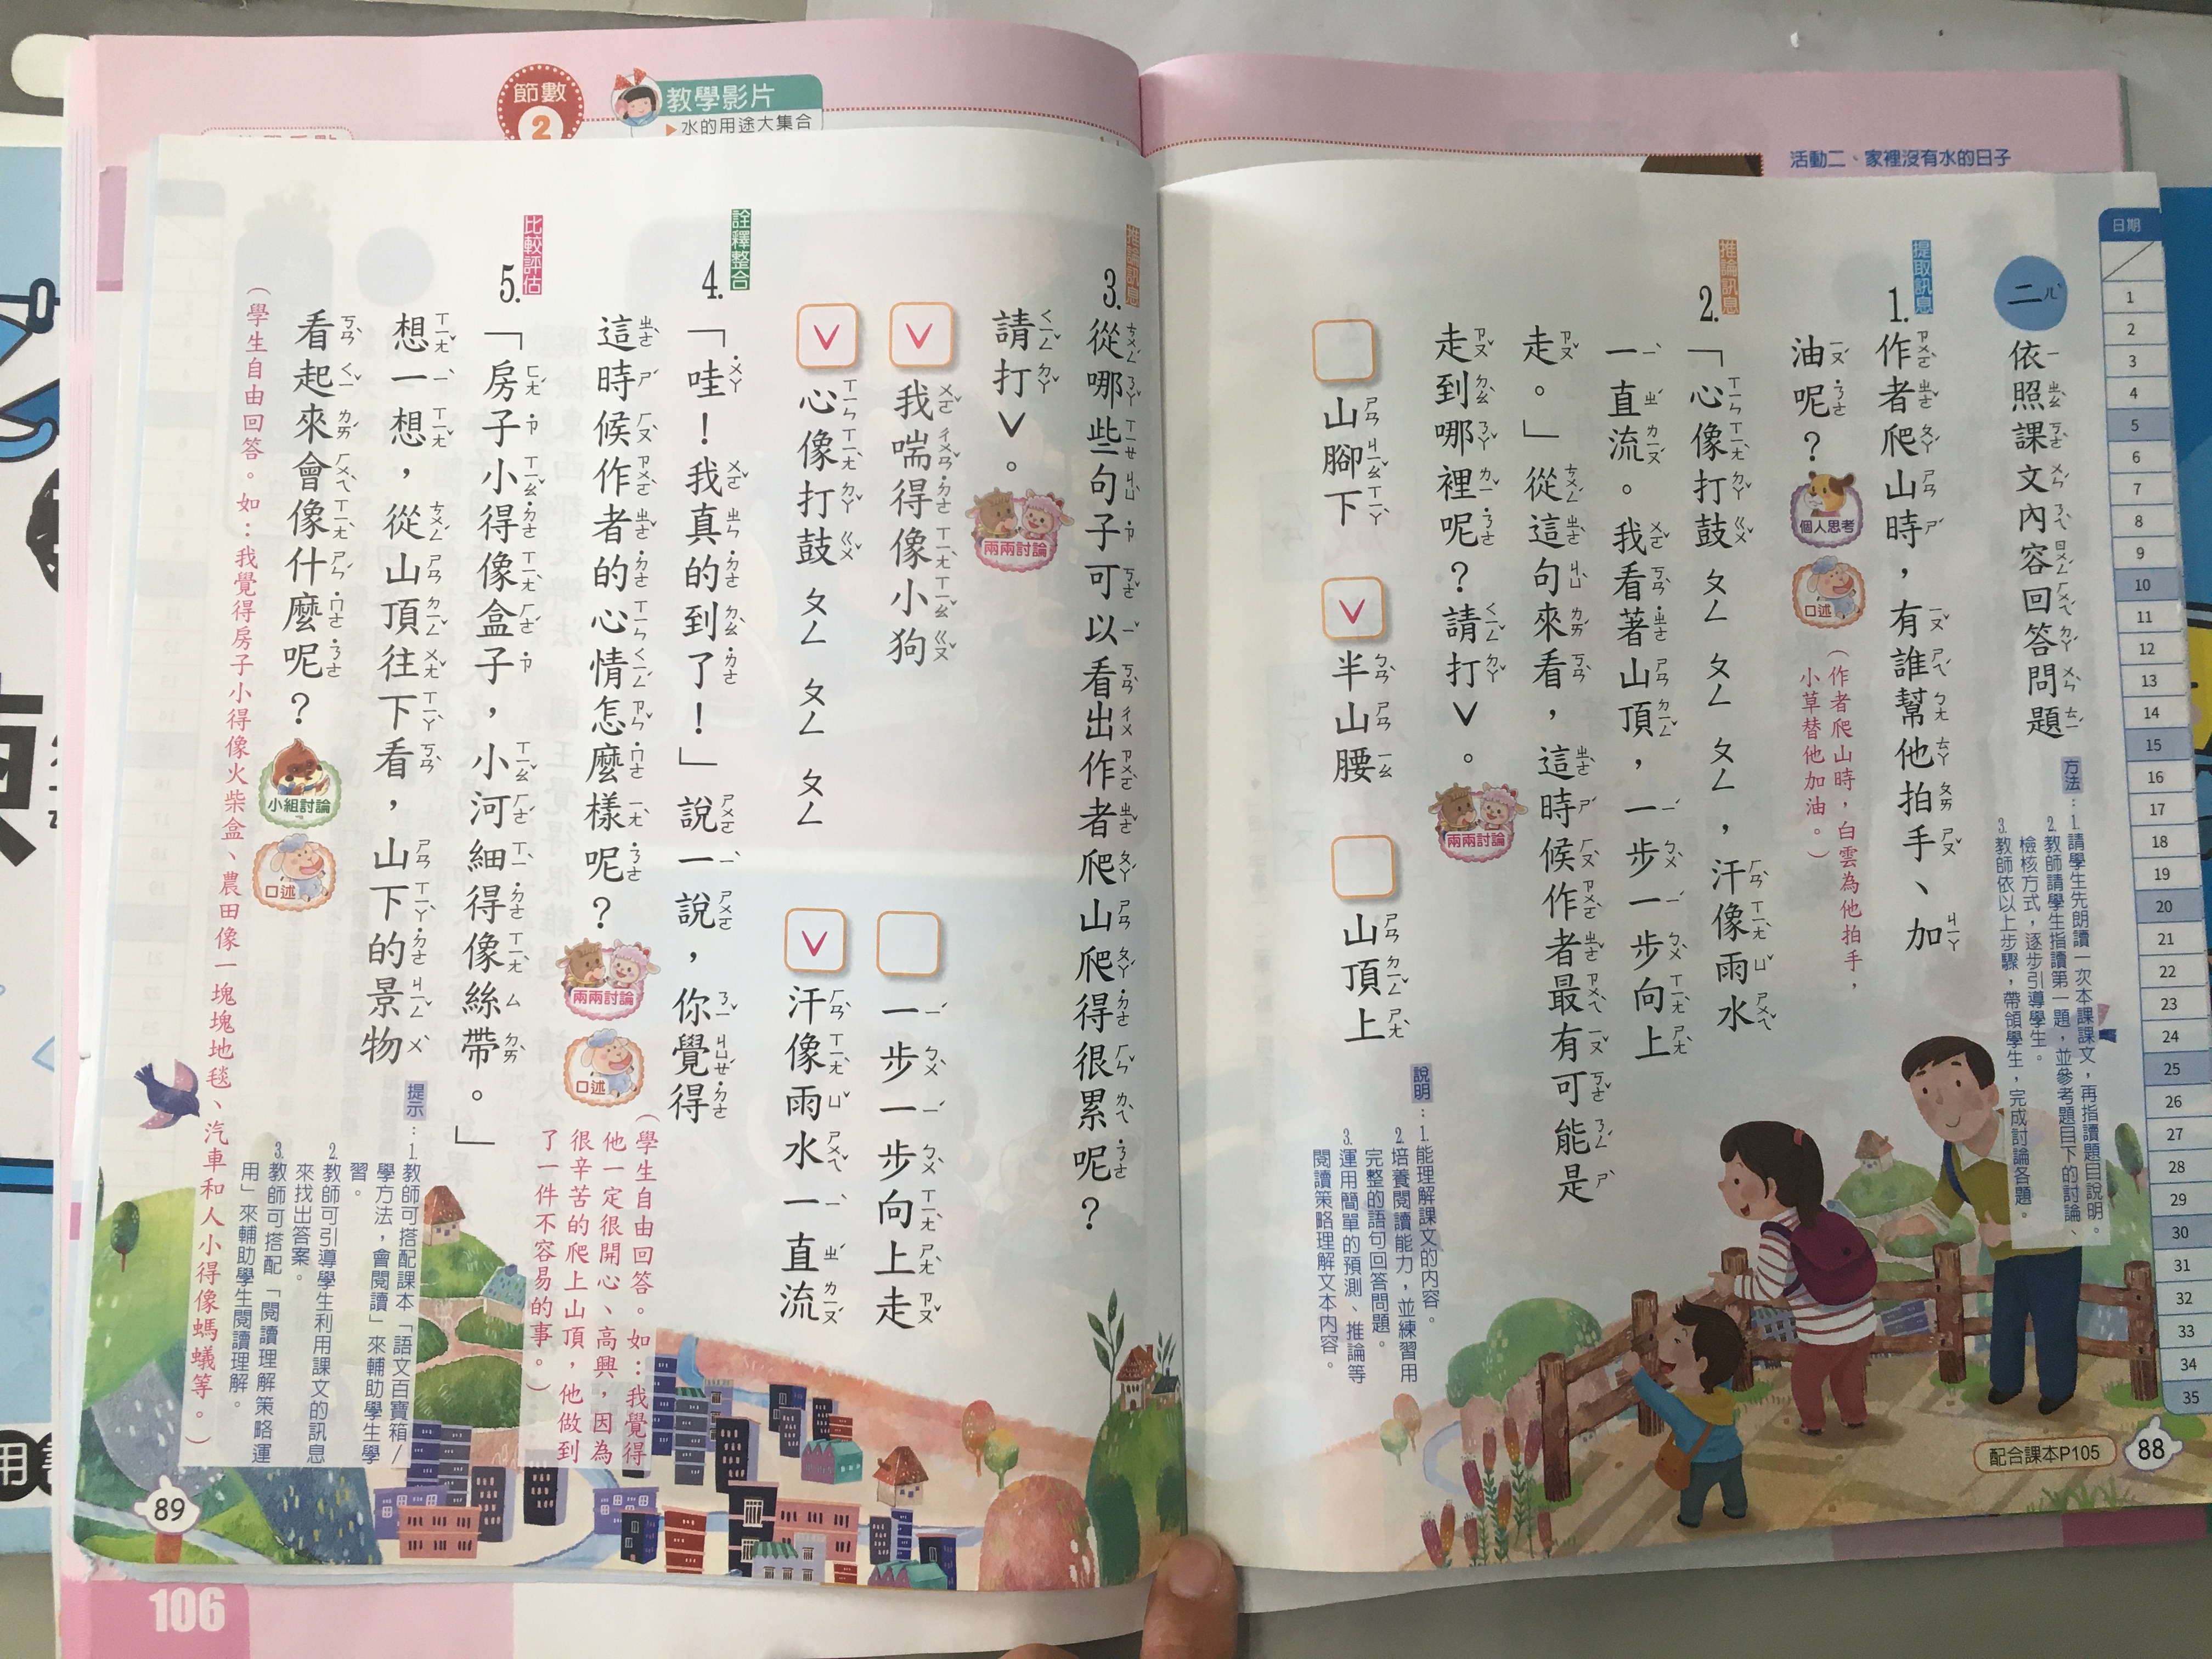 節數
2
教學影片
▶水的用途大集合
活動二、家裡沒有水的日子
日期
1
2
3
4
5
6
7
8
9
10
11
12
13
14
15
16
17
18
19
20
21
22
23
24
25
26
27
28
29
30
31
32
33
34
35
二 依照課文內容回答問題
方法：1.請學生先朗讀一次本課課文，再指讀題目說明。
2.教師請學生指讀第一題，並參考題目下的討論、
檢核方式，逐步引導學生。
3.教師依以上步驟，帶領學生，完成討論各題。
提取訊息
1.作者爬山時，有誰幫他拍手、加
油呢？
個人思考
口述
（作者爬山時，白雲為他拍手，
小草替他加油。）
推論訊息
2.「心像打鼓ㄆㄥㄆㄥㄆㄥ，汗像雨水
一直流。我看著山頂，一步一步向上
走。」從這句來看，這時候作者最有可能是
走到哪裡呢？請打ˇ。
兩兩討論
山腳下
ˇ半山腰
山頂上
說明：1.能理解課文的內容。
2.培養閱讀能力，並練習用
完整的語句回答問題。
3.運用簡單的預測、推論等
閱讀策略理解文本內容。
配合課本P105
88
推論訊息
3.從哪些句子可以看出作者爬山爬得很累呢？
請打ˇ。
兩兩討論
ˇ我喘得像小狗
一步一步向上走
ˇ心像打鼓ㄆㄥㄆㄥㄆㄥ
ˇ汗像雨水一直流
詮釋整合
4.「哇！我真的到了！」說一說，你覺得
這時候作者的心情怎麼樣呢？
兩兩討論
口述
（學生自由回答。如：我覺得
他一定很開心、高興，因為
很辛苦的爬上山頂，他做到
了一件不容易的事。）
比較評估
5.「房子小得像盒子，小河細得像絲帶。」
想一想，從山頂往下看，山下的景物
看起來會像什麼呢？
小組討論
口述
（學生自由回答。如：我覺得房子小得像火柴盒、農田像一塊塊地毯、汽車和人小得像螞蟻等。）
提示：1.教師可搭配課本「語文百寶箱/
學方法，會閱讀」來輔助學生學
習。
2.教師可引導學生利用課文的訊息
來找出答案。
3.教師可搭配「閱讀理解策略運
用」來輔助學生閱讀理解。
89
106